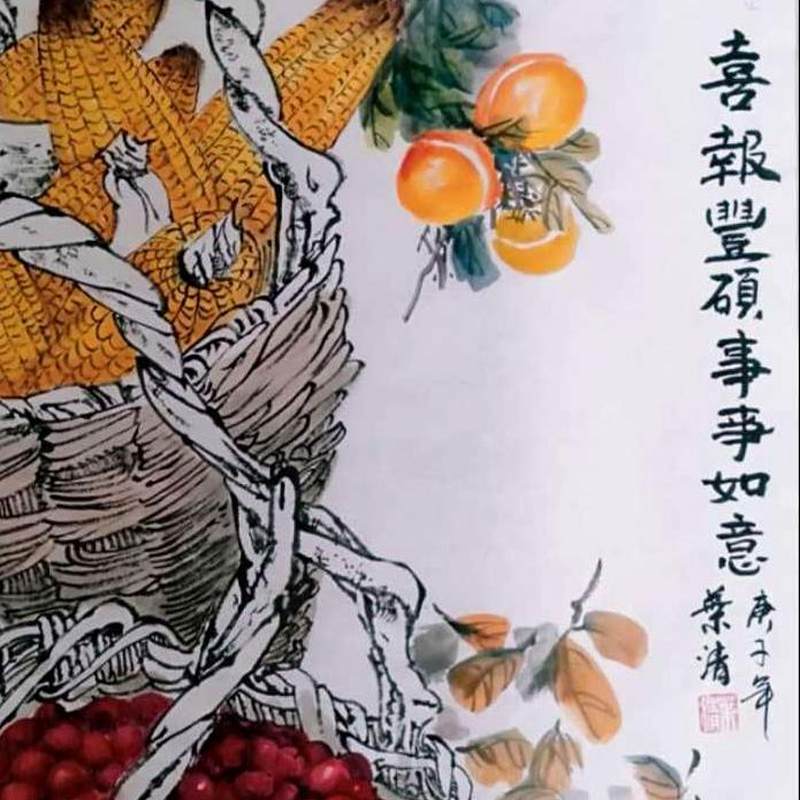 喜報豐碩事事如意
庚子年
葉清